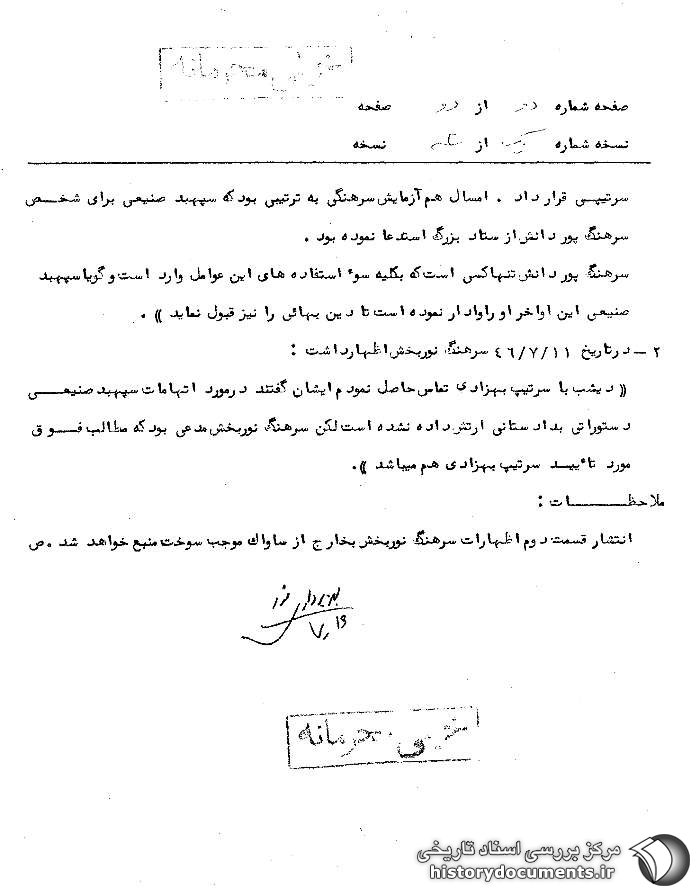 خیلی محرمانه
صفحه شماره دو از دو صفحه
نسخه شماره یک از سه نسخه
سرتیپی قرار داد . امسال هم آزمایش سرهنگی به ترتیبی بود که سپهبد صنیعی برای شخص
سرهنگ پور دانش از ستاد بزرگ استدعا نموده بود .
سرهنگ پور دانش تنها کسی است که بکلیه سوء استفاده های این عوامل وارد است و گویا سپهبد
صنیعی این اواخر او را وادار نموده است تا دین بهائی را نیز قبول نماید )) .
۲ – در تاریخ ۴۶/۷/۱۱ سرهنگ نوربخش اظهار داشت :
(( دیشب با سرتیپ بهزادی تماس حاصل نمودم ایشان گفتند در مورد اتهامات سپهبد صنیعی
دستوراتی بدادستانی ارتش داده نشده است لکن سرهنگ نوربخش مدعی بود که مطالب فوق
مورد تائیید سرتیپ بهزادی هم میباشد )).
ملاحظات :
انتشار قسمت دوم اظهارات سرهنگ نوربخش بخارج از ساواک موجب سوخت منبع خواهد شد .ص
خیلی محرمانه
مرکز بررسی اسناد تاریخی
historydocuments.ir